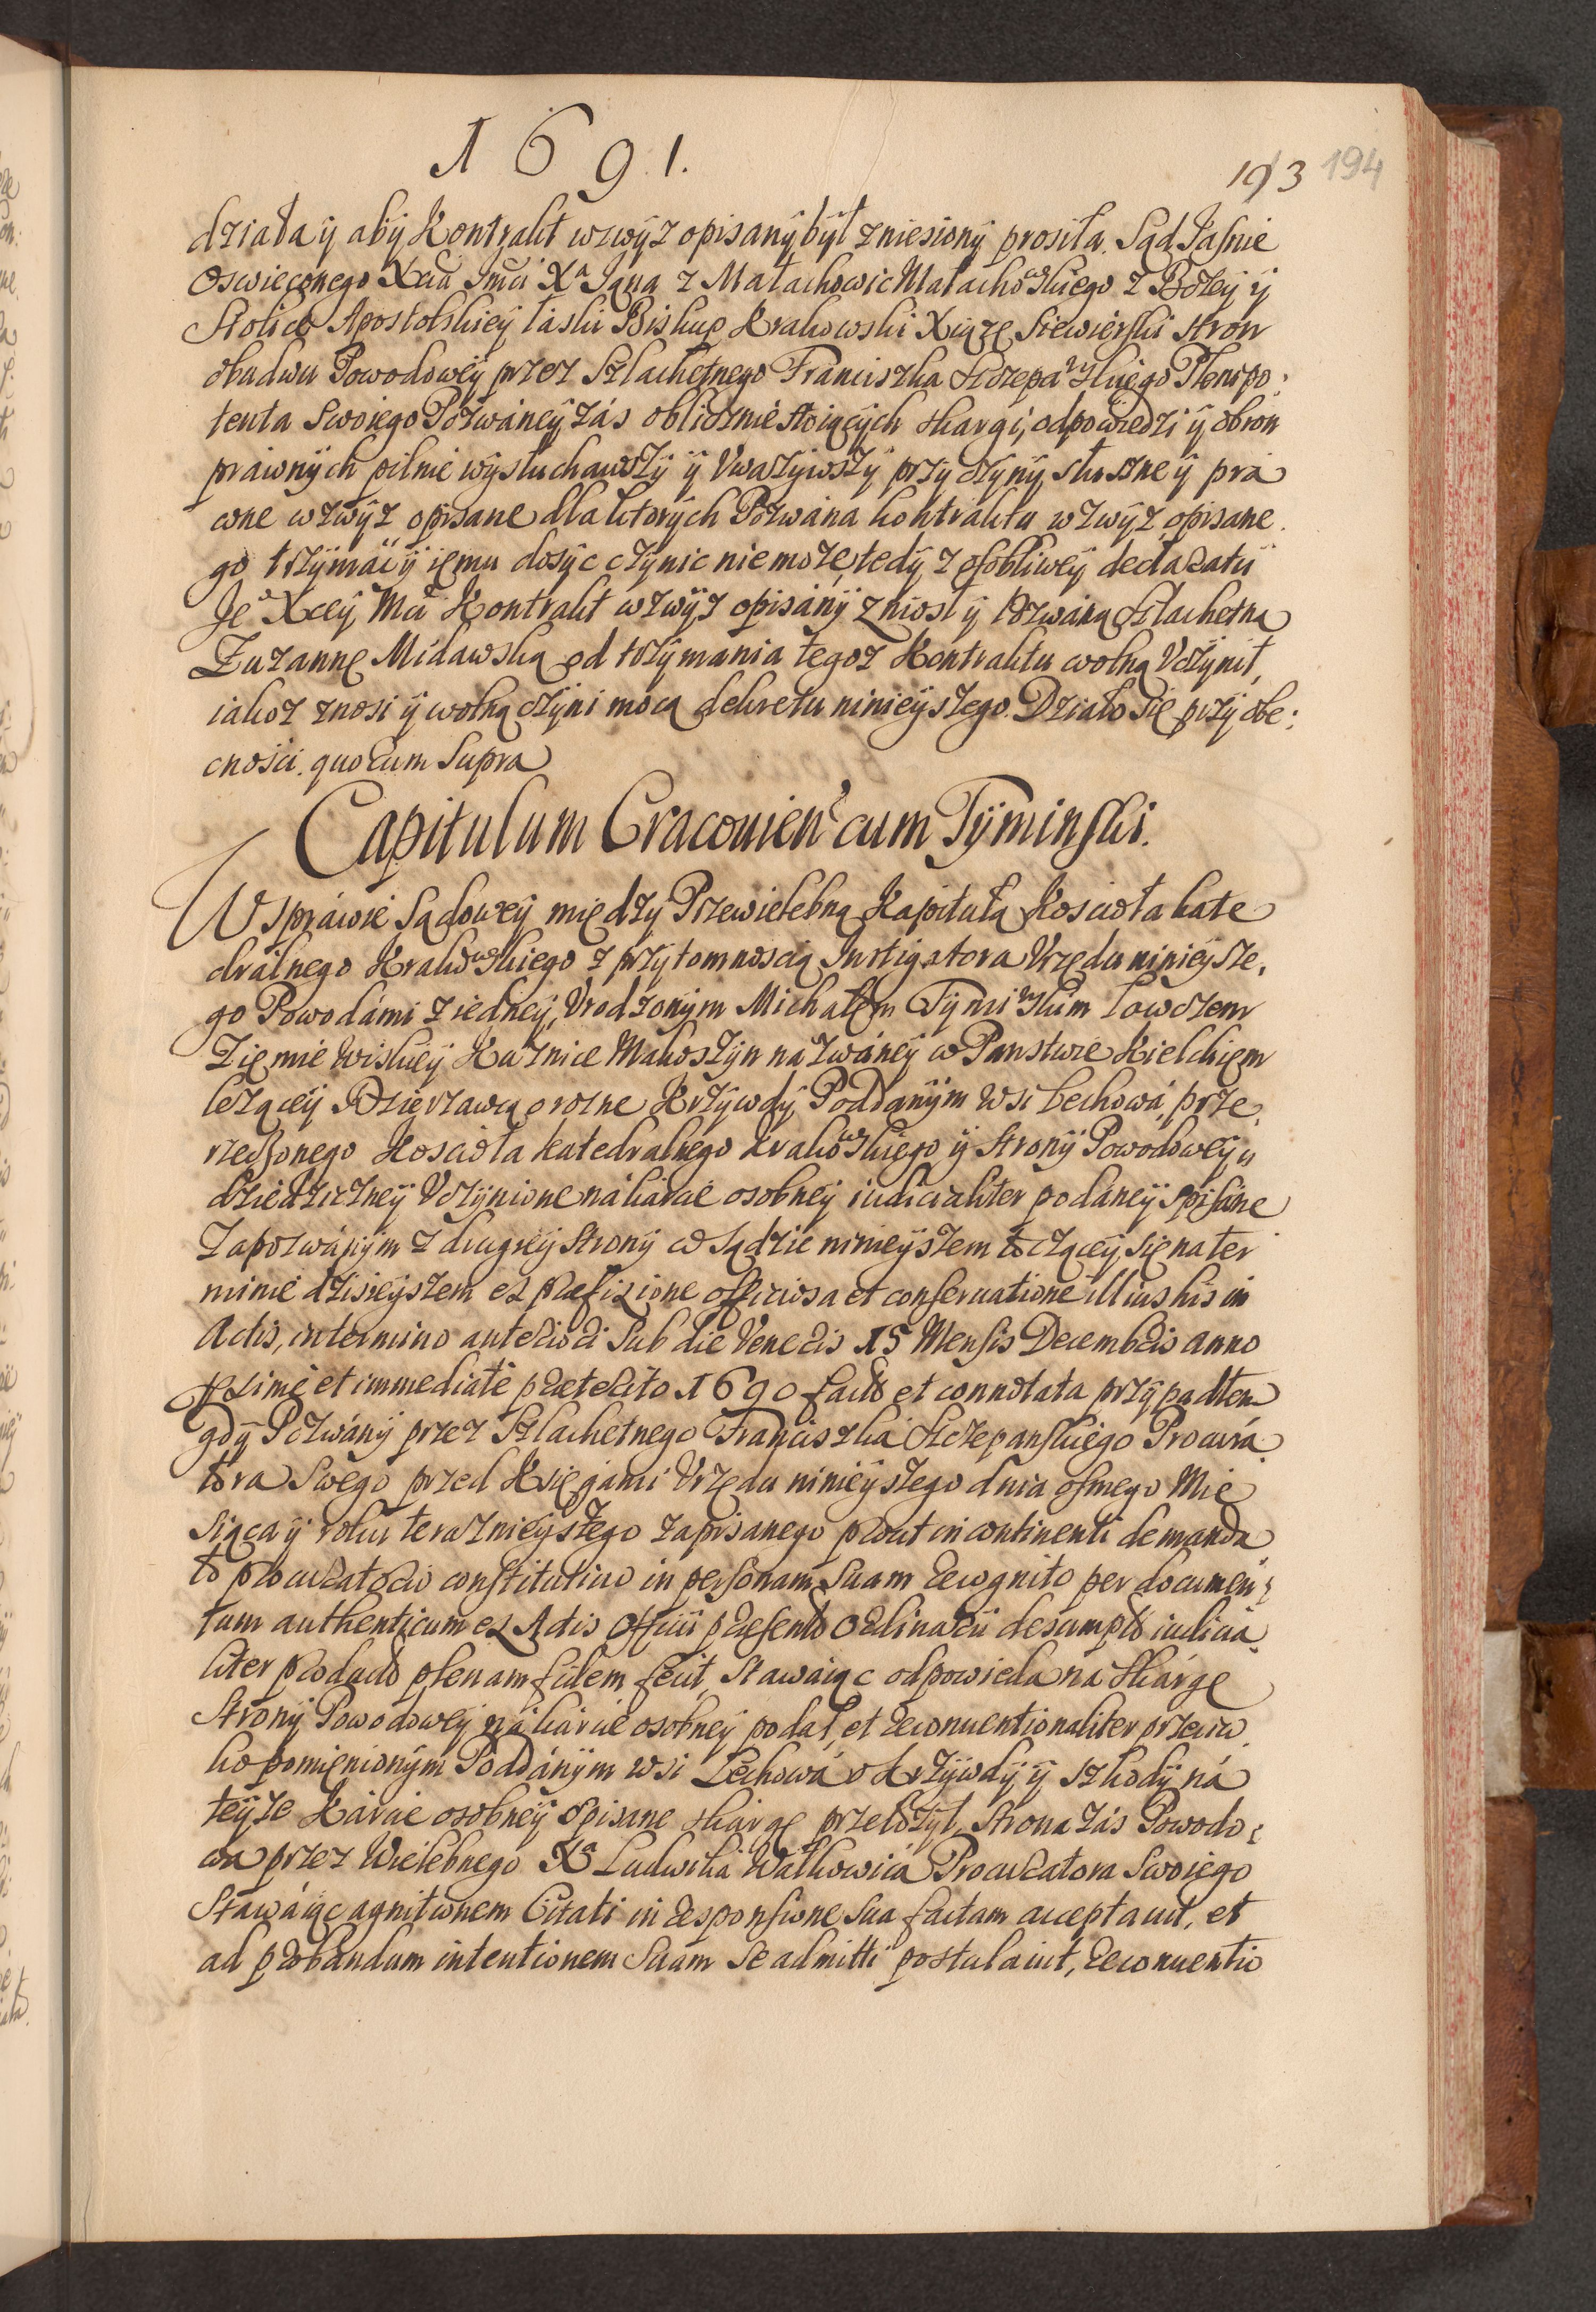 1691.
193 194
działa ÿ abÿ Kontrakt wzwÿz opisanÿ bÿł zniesionÿ prosiła. Sąd Jasnie
Oswięconego Xcia Jmci Xa Jana z Małachowic Małachowskiego z Bożeÿ ÿ
Stolice Apostolskieÿ łaski Biskup Krakowski Xiąże Siewierski stron
obudwu Powodoweÿ przez Szlachetnego Franciszka Szczepanskiego Plenipo:
tenta Swoiego Pozwáneÿ zás oblicznie stoiącÿch skargi, odpowiedzi ÿ obron
prawnÿch pilnie wÿsłuchawszÿ ÿ Uważÿwszÿ przÿczÿnÿ słuszne ÿ pra
wne wzwÿz opisane dla ktorÿch Pozwána kontraktu wzwÿz opisane
go trzÿmáć ÿ iemu dosÿc czÿnic nie może, tedÿ z osobliweÿ declaratÿ
Je° Xceÿ Mci Kontrakt wzwÿz opisánÿ zniosł ÿ Pozwáną Szlachetną
Zuzannę Midawską od trzÿmania tegoz Kontraktu wolną Uczÿnił,
iakoz znosi ÿ wolną czÿni mocą dekretu ninieÿszego. Działo się przÿ obe:
cności. quorum Supra
Capitulum Cracouien cum Tÿminski.
W spráwie Sądoweÿ międzÿ Przewielebną Kapitułą Koscioła kate
drálnego Krakowskiego z przÿtomnoscią Instigatora Urzędu ninieÿsze,
go Powodámi z iedneÿ, Urodzonÿm Michałem Tÿminskim Łowczem
Ziemie Wiskieÿ Kuznice Makoszÿn názwáneÿ w Panstwie Kielckiem
leżąceÿ Dzierzawcą o rozne Krzÿwdÿ Poddanÿm wsi Lechowá, prze,
rzeczonego Koscioła katedralnego Krakowskiego ÿ stronÿ Powodoweÿ
dziedziczneÿ Uczÿnione ná karcie osobneÿ iudicialiter podáneÿ spisáne
Zapozwánÿm z drugieÿ stronÿ w Sądzie ninieÿszem toczące ÿ się na ter
minie dzisieÿszem ex præfixione officiosa et conseruatione illius his in
Actis, in termino anteriori Sub die Veneris 15 Mensis Decembris anno
proxime et immediatè præterito 1690 facto et connotata przÿpadłem
gdÿ Pozwánÿ przez Szlachetnego Franciszká Szczepanskiego Procurá
tora Swego przed Księgámi Urzędu ninieÿszego dnia osmego Mie
siąca ÿ roku terázniejszego zapisanego prout in continenti de manda
to procuratorio constitutiuo in personam Suam recognito per documen:
tum authenticum ex Actis Officii præsentis ordinarii desumpto iudicia
liter producto plenam fidem fecit, Stawaiąc odpowiedz ná Skargę
Stronÿ Powodoweÿ ná karcie osobneÿ podał, et reconuentionaliter przeciw
ko pomienionÿm Poddánÿm wsi Lechowá o krzÿwdÿ ÿ szkodÿ ná
teÿże Kárcie osobneÿ spisane skárgę przełożÿł, Strona zás Powodo:
wa przez Wielebnego Xa Ludwika Wałkowica Procuratora Swoiego
Stawáiąc agnitionem Citati in responsione sua factam acceptauit, et
ad probandum intentionem Suam se admitti postulauit, reconuentio